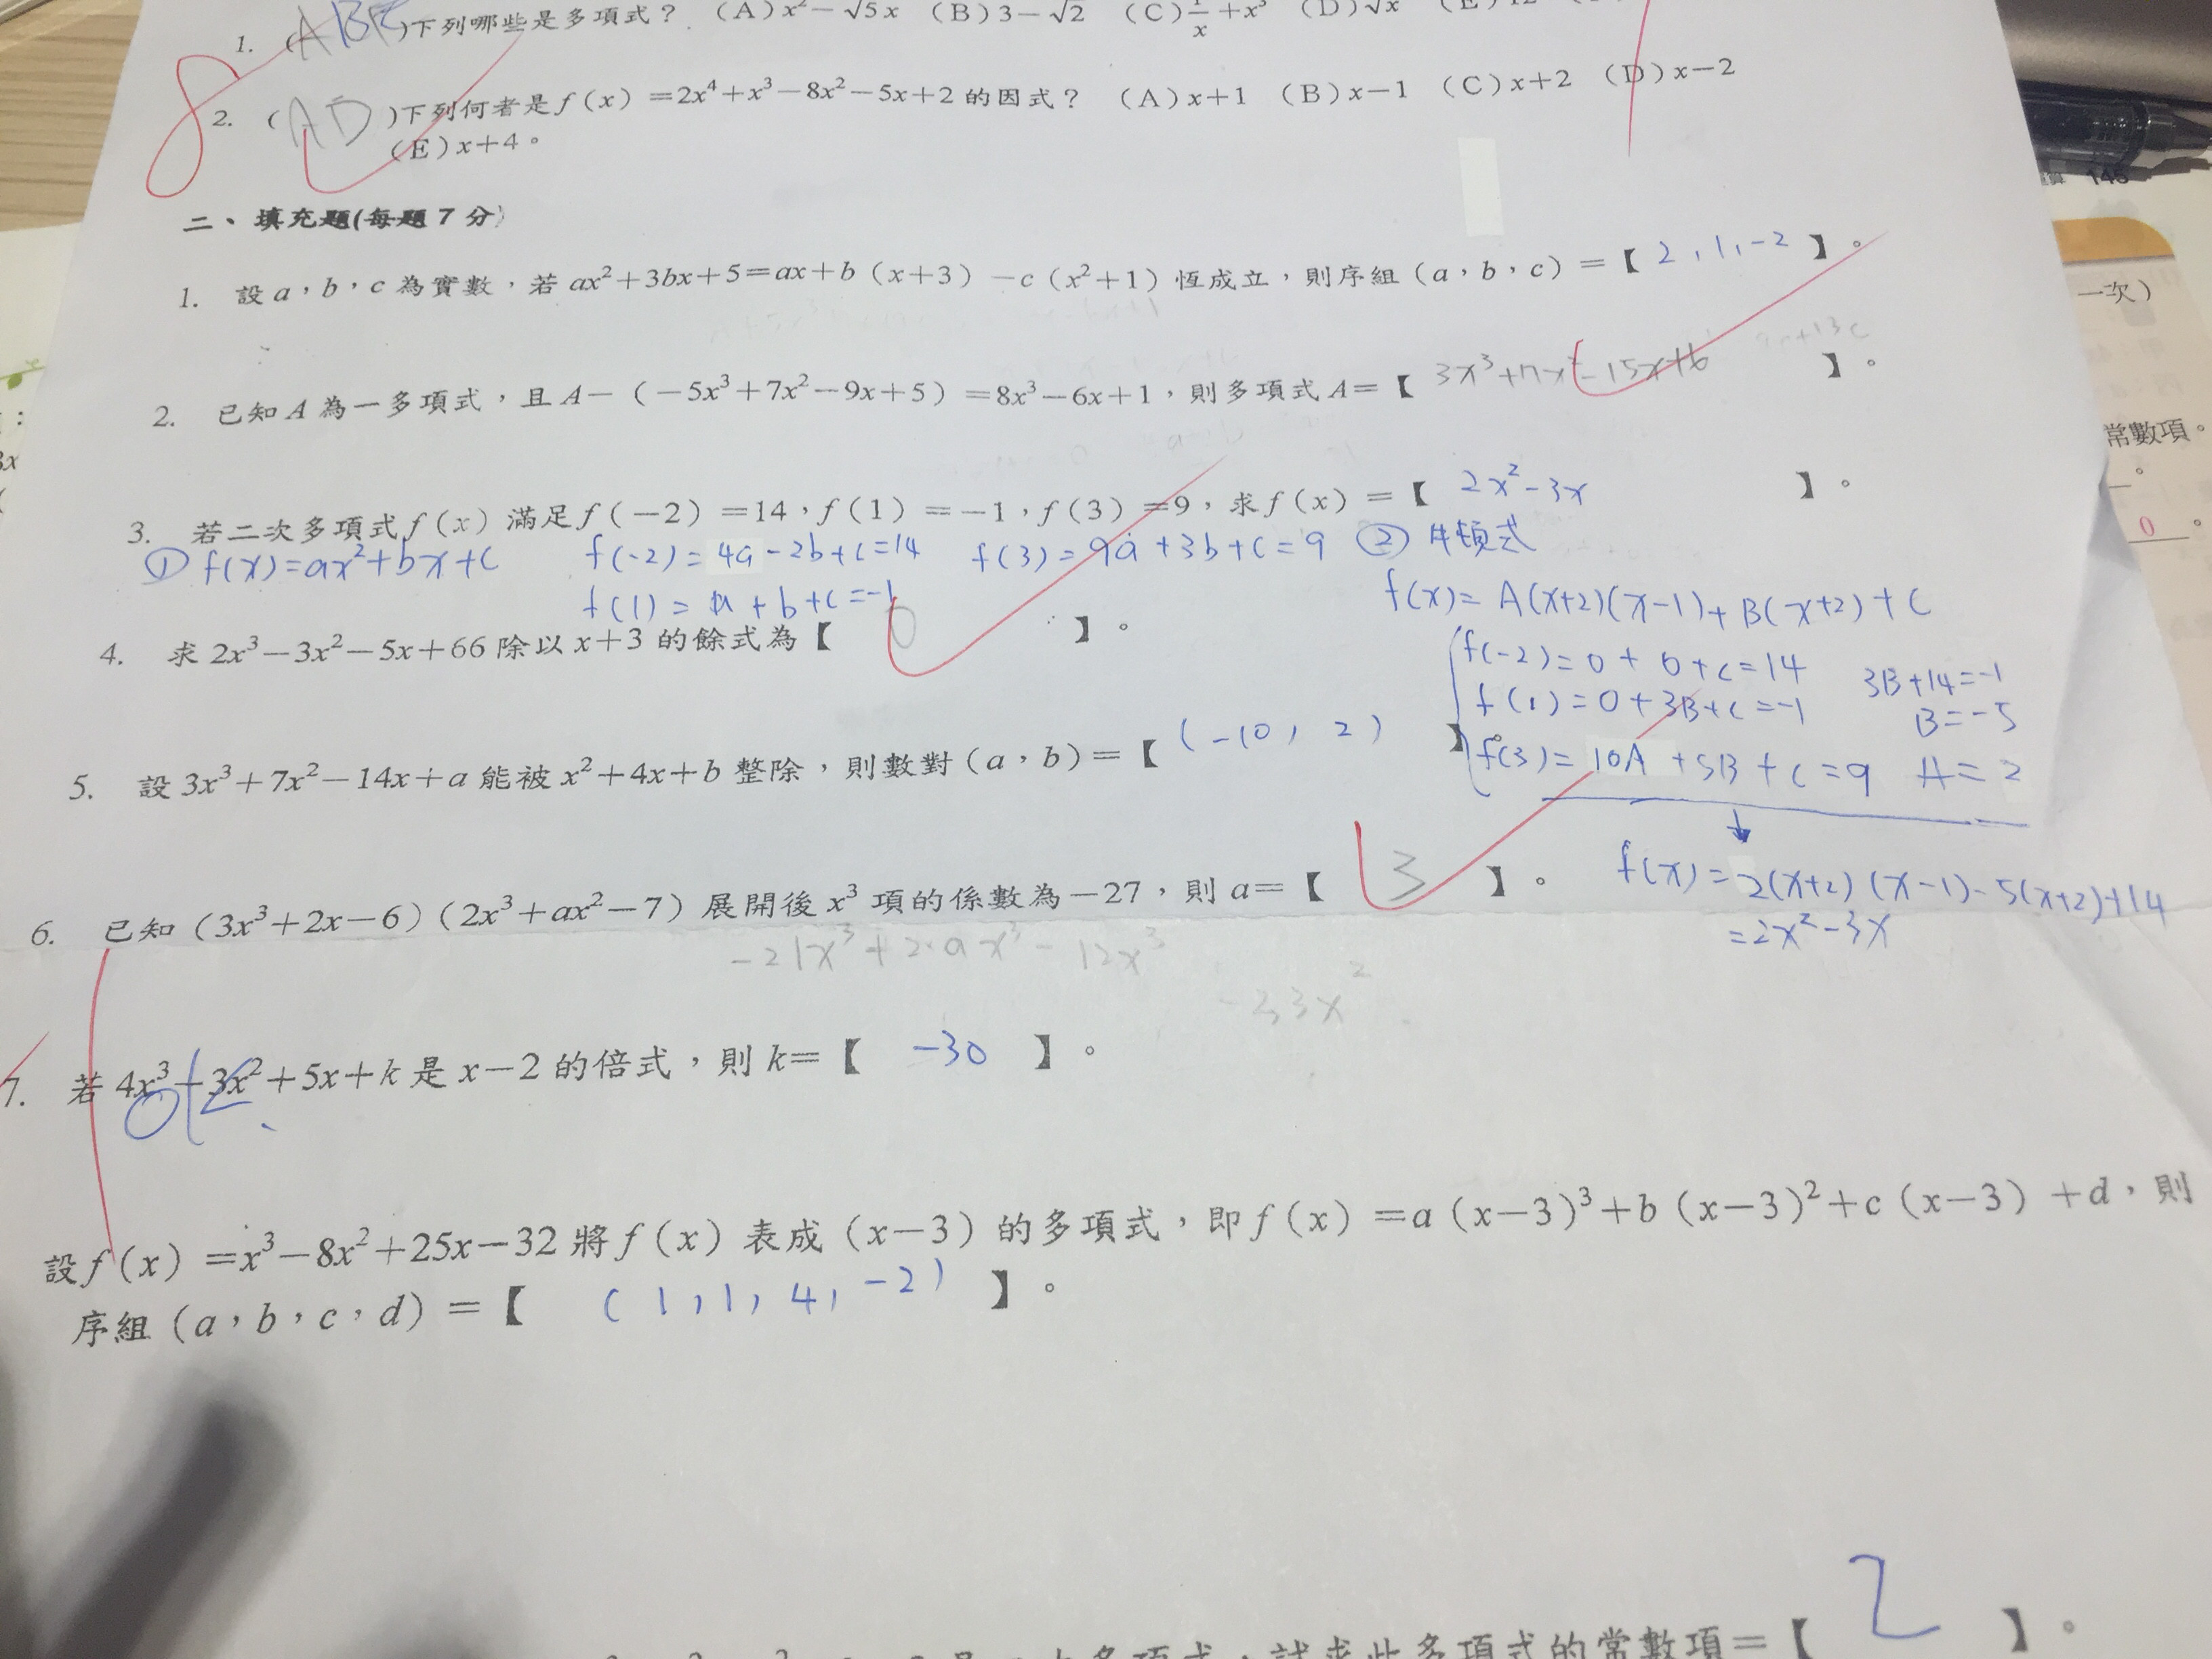 1. (ABE)下列哪些是多項式? (A)x²-√5x (B)3-√2 (C)1/x+x³ (D)√x
2. (AD)下列何者是f(x)=2x⁴+x³-8x²-5x+2的因式? (A)x+1 (B)x-1 (C)x+2 (D)x-2
(E)x+4。
二、填充題(每題7分)
1. 設a,b,c為實數,若ax²+3bx+5=ax+b(x+3)-c(x²+1)恆成立,則序組(a,b,c)=【2,1,-2】。
2. 已知A為一多項式,且A-(-5x³+7x²-9x+5)=8x³-6x+1,則多項式A=【3x³+7x²-15x+6】。
3. 若二次多項式f(x)滿足f(-2)=14,f(1)=-1,f(3)=9,求f(x)=【2x²-3x】。
① f(x)=ax²+bx+c f(-2)=4a-2b+c=14 f(3)=9a+3b+c=9 ② 牛頓式
f(1)=a+b+c=-1 f(x)=A(x+2)(x-1)+B(x+2)+C
4. 求2x³-3x²-5x+66除以x+3的餘式為【0】。
f(-2)=0+0+C=14
f(1)=0+3B+C=-1 3B+14=-1
B=-5
f(3)=10A+5B+C=9 A=2
5. 設3x³+7x²-14x+a能被x²+4x+b整除,則數對(a,b)=【(-10,2)】。
f(x)=2(x+2)(x-1)-5(x+2)+14
=2x²-3x
6. 已知(3x³+2x-6)(2x³+ax²-7)展開後x³項的係數為-27,則a=【3】。
-21x³+2·ax³-12x³
-33x²
7. 若4x³-3x²+5x+k是x-2的倍式,則k=【-30】。
設f(x)=x³-8x²+25x-32將f(x)表成(x-3)的多項式,即f(x)=a(x-3)³+b(x-3)²+c(x-3)+d,則
序組(a,b,c,d)=【(1,1,4,-2)】。
多項式,試求此多項式的常數項=【2】。
145
一次)
常數項。
0。